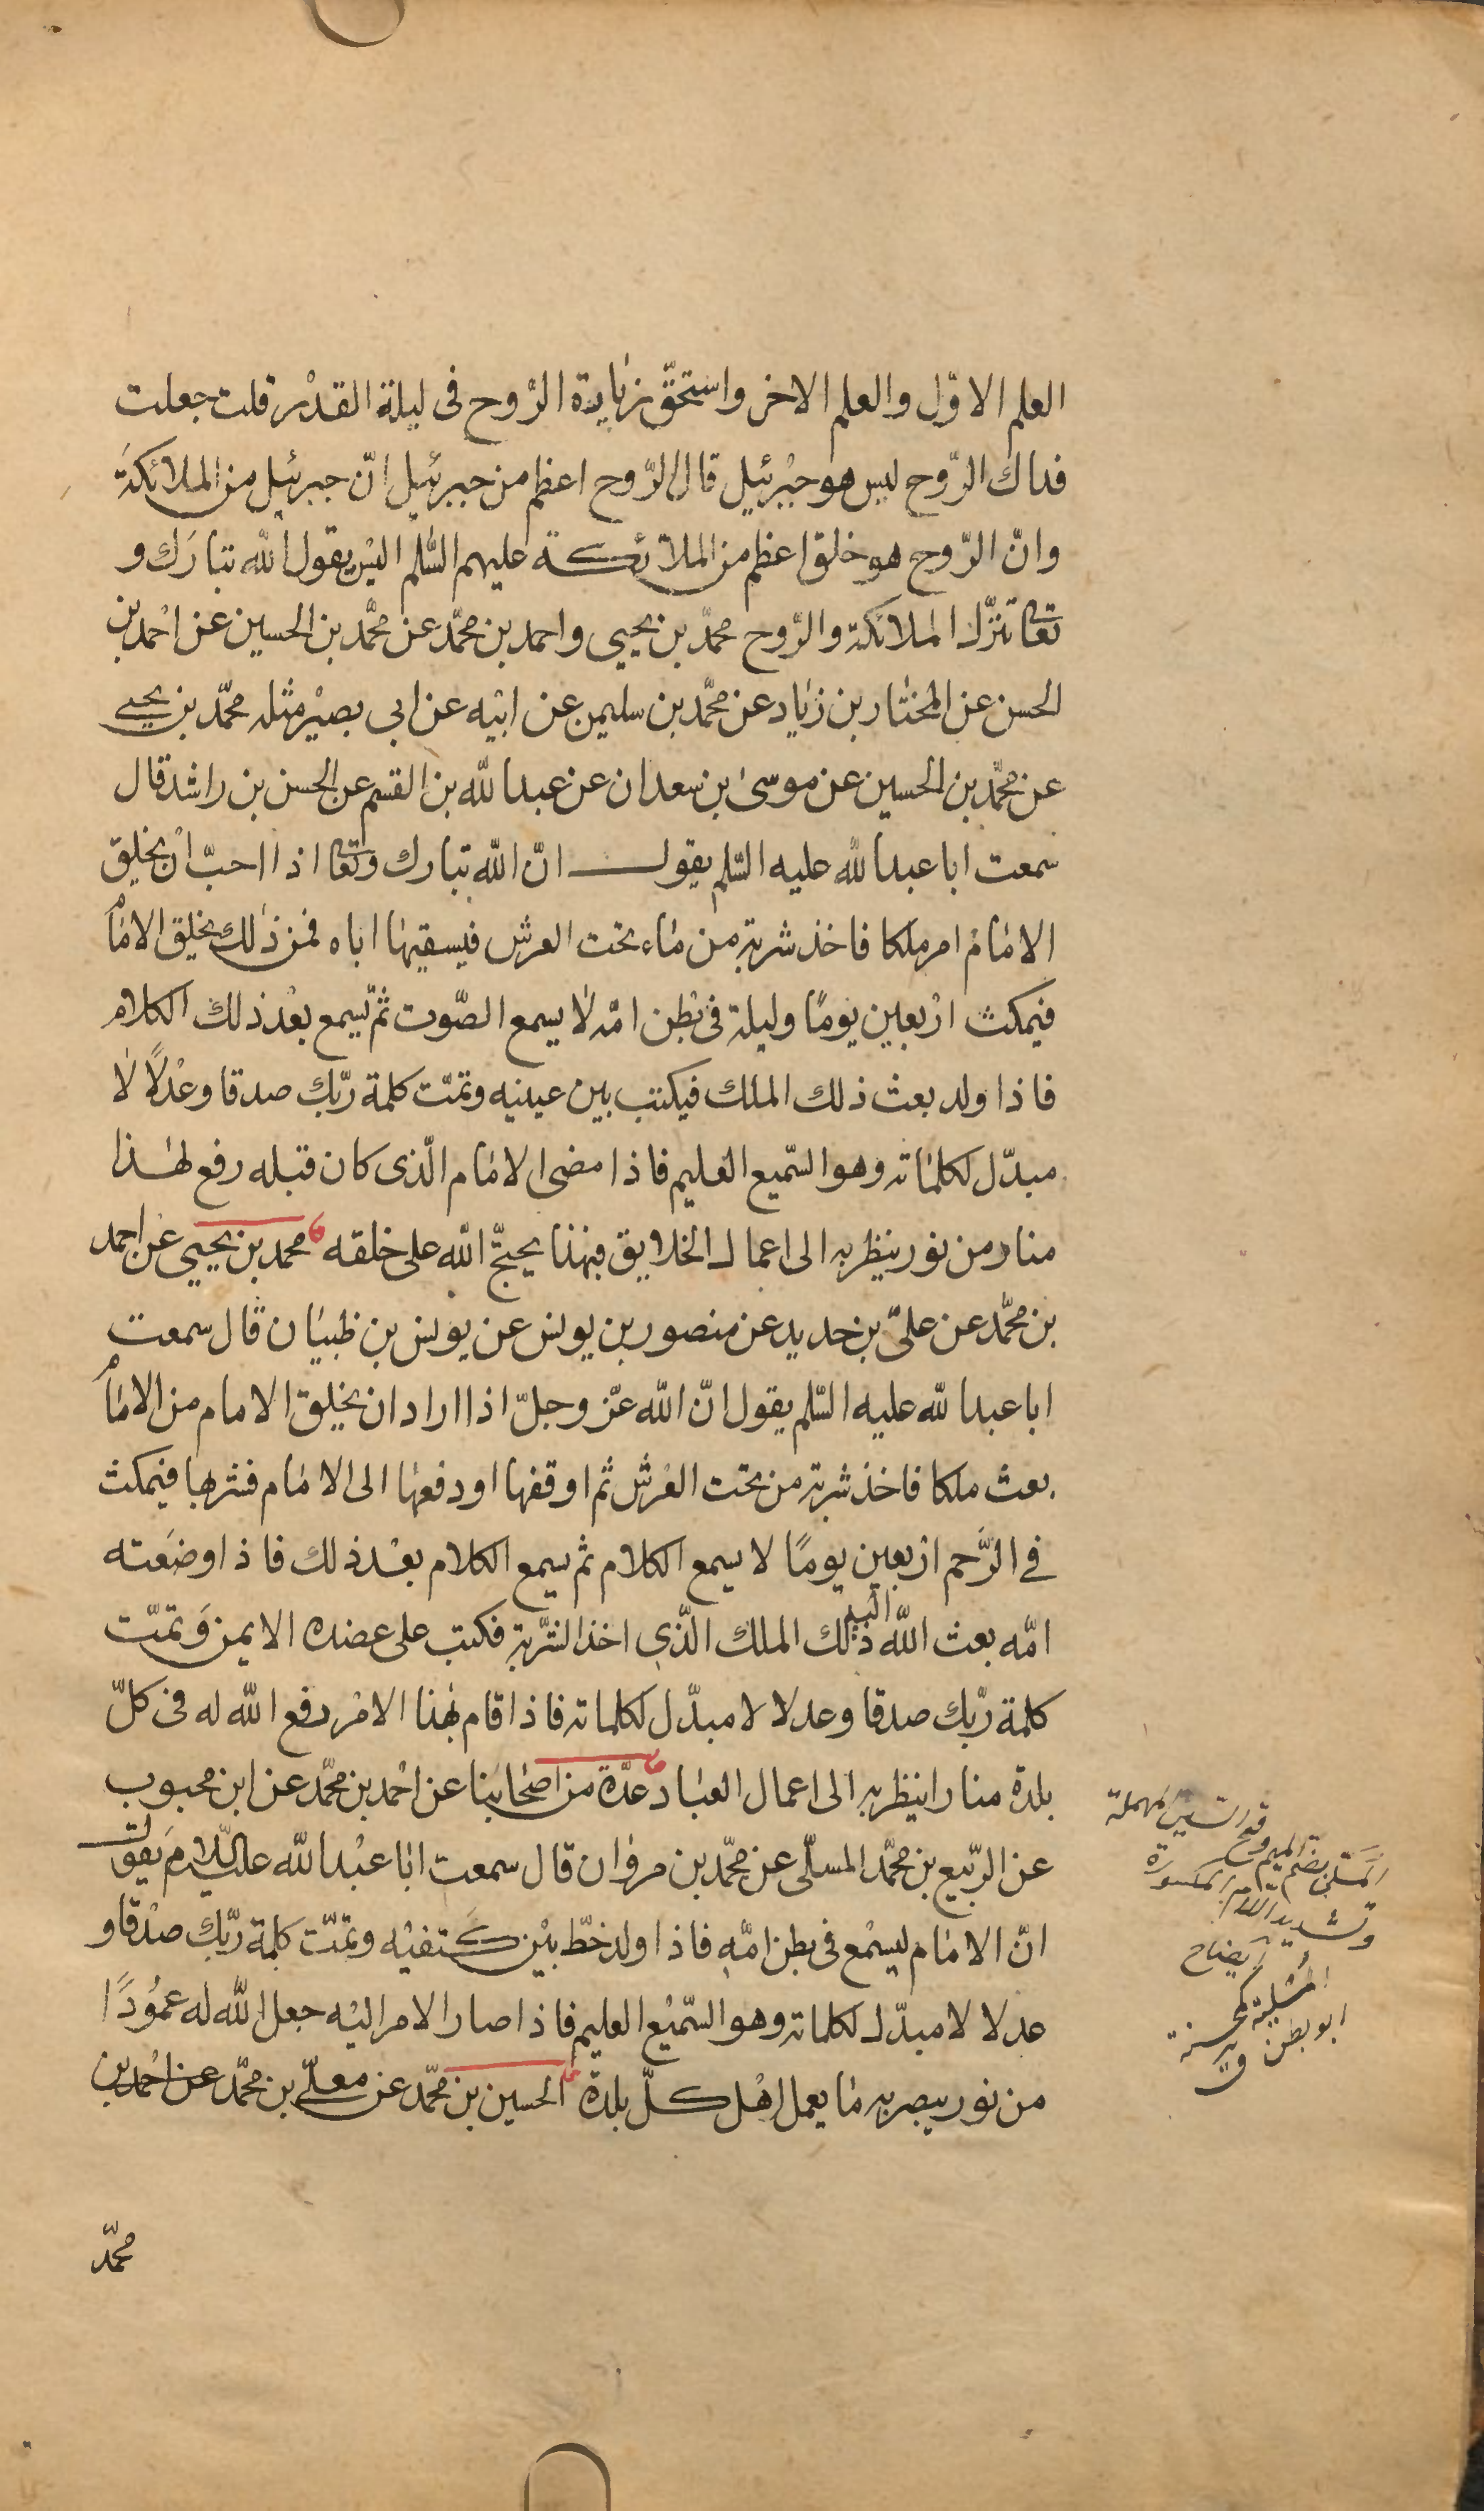 العلم الاوّل والعلم الاخر واستحقّ زيادة الرّوح فى ليلة القدر قلت جعلت
فداك الرّوح ليس هو جبرئيل قال الرّوح اعظم من جبرئيل انّ جبرئيل من الملائكة
وانّ الرّوح هو خلق اعظم من الملائكة عليهم السّلم اليس يقول الله تبارك و
تعا تنزّل الملائكة والرّوح محمّد بن يحيى واحمد بن محمّد عن محمّد بن الحسين عن احمد بن
الحسن عن المختار بن زياد عن محمّد بن سليمن عن ابيه عن ابى بصير مثله محمّد بن يحيى
عن محمّد بن الحسين عن موسى بن سعدان عن عبدالله بن القسم عن الحسن بن راشد قال
سمعت اباعبدالله عليه السّلم يقول انّ الله تبارك وتعا اذا احبّ ان يخلق
الامام امر ملكا فاخذ شربة من ماء تحت العرش فيسقيها اباه فمن ذلك يخلق الامام
فيمكث اربعين يومًا وليلة فى بطن امّه لا يسمع الصّوت ثمّ يسمع بعد ذلك الكلام
فاذا ولد بعث ذلك الملك فيكتب بين عينيه وتمّت كلمة ربّك صدقا وعدلًا لا
مبدّل لكلماته وهو السّميع العليم فاذا مضى الامام الّذى كان قبله رفع لهذا
منار من نور ينظر به الى اعمال الخلايق فبهذا يحتجّ الله على خلقه محمد بن يحيى عن احمد
بن محمّد عن علىّ بن حديد عن منصور بن يونس عن يونس بن ظبيان قال سمعت
اباعبدالله عليه السّلم يقول انّ الله عزّ وجلّ اذا اراد ان يخلق الامام من الامام
بعث ملكا فاخذ شربة من تحت العرش ثم اوقفها او دفعها الى الامام فشربها فيمكث
فى الرَّحم اربعين يومًا لا يسمع الكلام ثم يسمع الكلام بعد ذلك فاذا وضعته
امّه بعث الله اليه ذلك الملك الّذى اخذ الشّربة فكتب على عضده الايمن وَتمّت
كلمة ربّك صدقا وعدلا لا مبدّل لكلماته فاذا قام بهذا الامر رفع الله له فى كلّ
بلدة منارا ينظر به الى اعمال العباد عدّة من اصحابنا عن احمد بن محمّد عن ابن محبوب
عن الرّبيع بن محمّد المسلّى عن محمّد بن مروان قال سمعت اباعبدالله عليه السّلام يقول
انّ الامام ليسمع فى بطن امّه فاذا ولد خطّ بين كتفيه وتمّت كلمة ربّك صدقا و
عدلا لا مبدّل لكلماته وهو السّميع العليم فاذا صار الامر اليه جعل الله له عمُودًا
من نور يبصر به ما يعمل اهل كلّ بلدة الحسين بن محمّد عن معلّى بن محمّد عن احمد بن
محمّد
المسلى بضم الميم وفتح السين المهملة
وتشديد اللام المكسورة
ايضاح
المُسْلية كمحسنة
ابو بطن ق